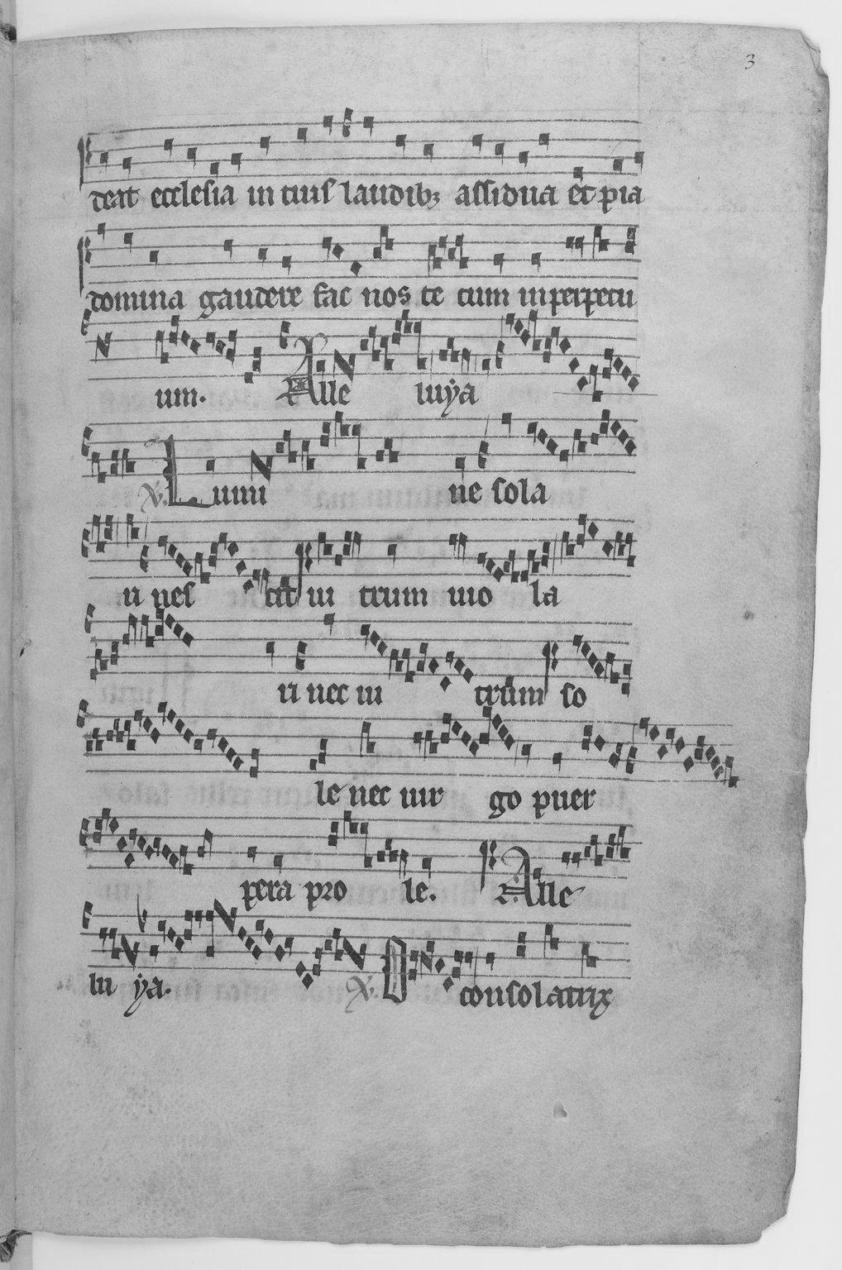 3
deat ecclesia in cuius laudibꝫ assidua et pia
domina gaudere fac nos te cum in perpetu
um. Alle luya
℣. Lumi ne sola
ri nescit in trum uio la
ri nec in trum so
le nec uir go puer
pera pro le. Alle
lu ya. ℣. O consolatrix